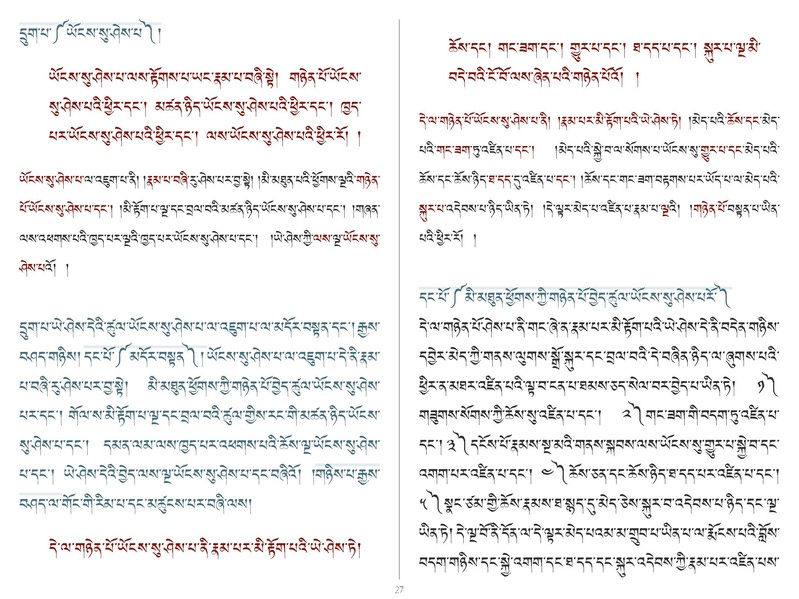 དྲུག་པ་༼ཡོངས་སུ་ཤེས་པ་༽།
ཡོངས་སུ་ཤེས་པ་ལས་རྟོགས་པ་ཡང་རྣམ་པ་བཞི་སྟེ། གཉེན་པོ་ཡོངས་
སུ་ཤེས་པའི་ཕྱིར་དང་། མཚན་ཉིད་ཡོངས་སུ་ཤེས་པའི་ཕྱིར་དང་། ཁྱད་
པར་ཡོངས་སུ་ཤེས་པའི་ཕྱིར་དང་། ལས་ཡོངས་སུ་ཤེས་པའི་ཕྱིར་རོ། །
ཡོངས་སུ་ཤེས་པ་ལ་འཇུག་པ་ནི། །རྣམ་པ་བཞི་རུ་ཤེས་པར་བྱ་སྟེ། །མི་མཐུན་པའི་ཕྱོགས་ལྔའི་གཉེན་
པོ་ཡོངས་སུ་ཤེས་པ་དང་། །མི་རྟོག་པ་ལྔ་དང་བྲལ་བའི་མཚན་ཉིད་ཡོངས་སུ་ཤེས་པ་དང་། །གཞན་
ལས་འཕགས་པའི་ཁྱད་པར་ལྔའི་ཁྱད་པར་ཡོངས་སུ་ཤེས་པ་དང་། །ཡེ་ཤེས་ཀྱི་ལས་ལྔ་ཡོངས་སུ་
ཤེས་པའོ། །
དྲུག་པ་ཡེ་ཤེས་དེའི་ཚུལ་ཡོངས་སུ་ཤེས་པ་ལ་འཇུག་པ་ལ་མདོར་བསྟན་དང་། རྒྱས་
བཤད་གཉིས། དང་པོ་༼མདོར་བསྟན་༽། ཡོངས་སུ་ཤེས་པ་ལ་འཇུག་པ་དེ་ནི་རྣམ་
པ་བཞི་རུ་ཤེས་པར་བྱ་སྟེ། མི་མཐུན་ཕྱོགས་ཀྱི་གཉེན་པོ་བྱེད་ཚུལ་ཡོངས་སུ་ཤེས་
པར་དང་། གོལ་ས་མི་རྟོག་པ་ལྔ་དང་བྲལ་བའི་ཚུལ་གྱིས་རང་གི་མཚན་ཉིད་ཡོངས་
སུ་ཤེས་པ་དང་། དམན་ལམ་ལས་ཁྱད་པར་འཕགས་པའི་ཆོས་ལྔ་ཡོངས་སུ་ཤེས་
པ་དང་། ཡེ་ཤེས་དེའི་བྱེད་ལས་ལྔ་ཡོངས་སུ་ཤེས་པ་དང་བཞིའོ། །གཉིས་པ་རྒྱས་
བཤད་ལ་གོང་གི་རིམ་པ་དང་མཚུངས་པར་བཞི་ལས།
དེ་ལ་གཉེན་པོ་ཡོངས་སུ་ཤེས་པ་ནི་རྣམ་པར་མི་རྟོག་པའི་ཡེ་ཤེས་ཏེ།
ཆོས་དང་། གང་ཟག་དང་། གྱུར་པ་དང་། ཐ་དད་པ་དང་། སྐུར་པ་ལྔ་མི་
བདེ་བའི་ངོ་བོ་ལས་ཞེན་པའི་གཉེན་པོའོ། །
དེ་ལ་གཉེན་པོ་ཡོངས་སུ་ཤེས་པ་ནི། །རྣམ་པར་མི་རྟོག་པའི་ཡེ་ཤེས་ཏེ། །མེད་པའི་ཆོས་དང་མེད་
པའི་གང་ཟག་ཏུ་འཛིན་པ་དང་། །མེད་པའི་སྐྱེ་བ་ལ་སོགས་པ་ཡོངས་སུ་གྱུར་པ་དང་མེད་པའི་
ཆོས་དང་ཆོས་ཉིད་ཐ་དད་དུ་འཛིན་པ་དང་། །ཆོས་དང་གང་ཟག་བརྟགས་པར་ཡོད་པ་ལ་མེད་པའི་
སྐུར་པ་འདེབས་པ་ཉིད་ཡིན་ཏེ། །དེ་ལྟར་མེད་པ་འཛིན་པ་རྣམ་པ་ལྔའི། །གཉེན་པོ་བསྟན་པ་ཡིན་
པའི་ཕྱིར་རོ། །
དང་པོ་༼མི་མཐུན་ཕྱོགས་ཀྱི་གཉེན་པོ་བྱེད་ཚུལ་ཡོངས་སུ་ཤེས་པར་རོ་༽
དེ་ལ་གཉེན་པོ་ཤེས་པ་ནི་གང་ཞེ་ན་རྣམ་པར་མི་རྟོག་པའི་ཡེ་ཤེས་དེ་ནི་བདེན་གཉིས་
དབྱེར་མེད་ཀྱི་གནས་ལུགས་སྒྲོ་སྐུར་དང་བྲལ་བའི་དེ་བཞིན་ཉིད་ལ་ཞུགས་པའི་
ཕྱིར་ན་མཐར་འཛིན་པའི་ལྟ་བ་ངན་པ་ཐམས་ཅད་སེལ་བར་བྱེད་པ་ཡིན་ཏེ། ༡༽
གཟུགས་སོགས་ཀྱི་ཆོས་སུ་འཛིན་པ་དང་། ༢༽གང་ཟག་གི་བདག་ཏུ་འཛིན་པ་
དང་། ༣༽དངོས་པོ་རྣམས་སྔ་མའི་གནས་སྐབས་ལས་ཡོངས་སུ་གྱུར་པ་སྐྱེ་བ་དང་
འགག་པར་འཛིན་པ་དང་། ༤༽ཆོས་ཅན་དང་ཆོས་ཉིད་ཐ་དད་པར་འཛིན་པ་དང་།
༥༽སྣང་ཙམ་གྱི་ཆོས་རྣམས་ཐ་སྙད་དུ་མེད་ཅེས་སྐུར་བ་འདེབས་པ་ཉིད་དང་ལྔ་
ཡིན་ཏེ། དེ་ལྔ་པོ་ནི་དོན་ལ་དེ་ལྟར་མེད་པའམ་མ་གྲུབ་པ་ཡིན་པ་ལ་རྨོངས་པའི་བློས་
བདག་གཉིས་དང་སྐྱེ་འགག་དང་ཐ་དད་དང་སྐུར་འདེབས་ཀྱི་རྣམ་པར་འཛིན་པས་
27